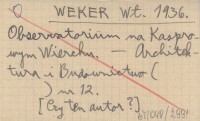 WEKER Wł. 1936.
Observatorium na Kaspro-
wym Wierchu. — Architek-
tura i Budownictwo (
) nr 12.
[Czy ten autor?]